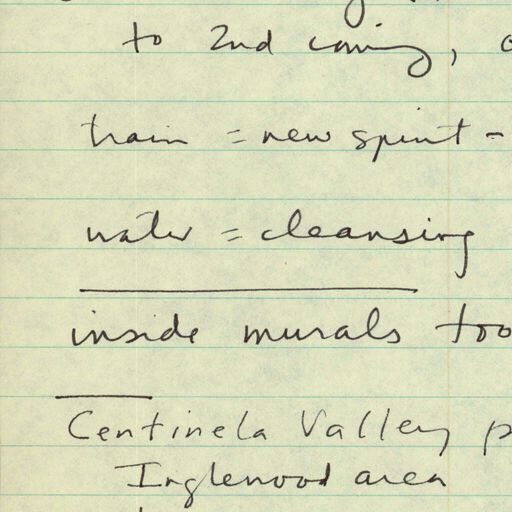 to 2nd coming,
train = new spirit -
water = cleansing
inside murals too
Centinela Valley p
Inglewood area